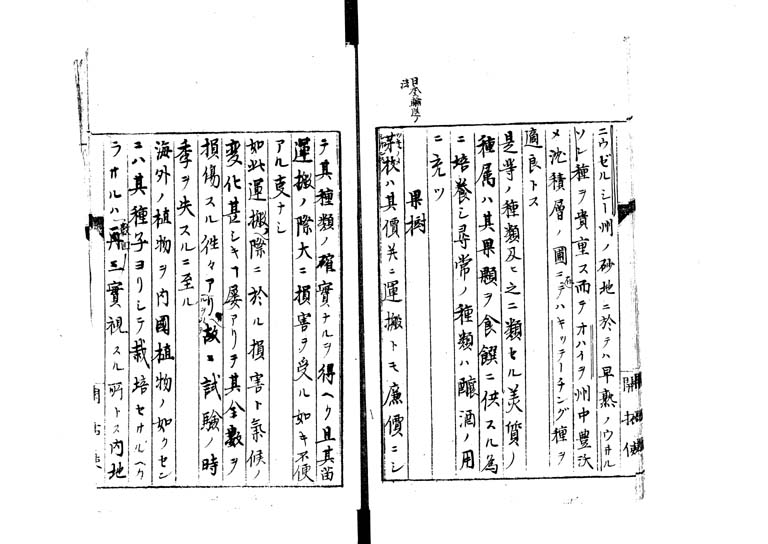 ニウゼルシー州ノ砂地ニ於テハ早熟ノウオル
ソン種ヲ貴重ス而テオハイヲ州中豊沃
メ沈積層ノ圃ニテハキツテーチング種ヲ
適良トス
是等ノ種類及ヒ之ニ類セル美質ノ
種属ハ其果顆ヲ食饌ニ供スル為
ニ培養シ尋常ノ種類ハ醸酒ノ用
ニ充ツ
果樹
ハ其價共ニ運搬トモ廉價ニシ
開拓使
テ其種類ノ確實ナルヲ得ヘク且其苗
運搬ノ際大ニ損害ヲ受ル如キ不便
アル叓ナシ
如此運搬ノ際ニ於ル損害ト氣候ノ
変化甚シキヿ屡アリテ其全数ヲ
損傷スル往々アリ故ニ試驗ノ時
季ヲ失スルニ至ル
海外ノ植物ヲ内國植物ノ如クセン
ニハ其種子ヨリシテ栽培セサルヘカ
ラサルハ再三實視スル所トス内地
開拓使